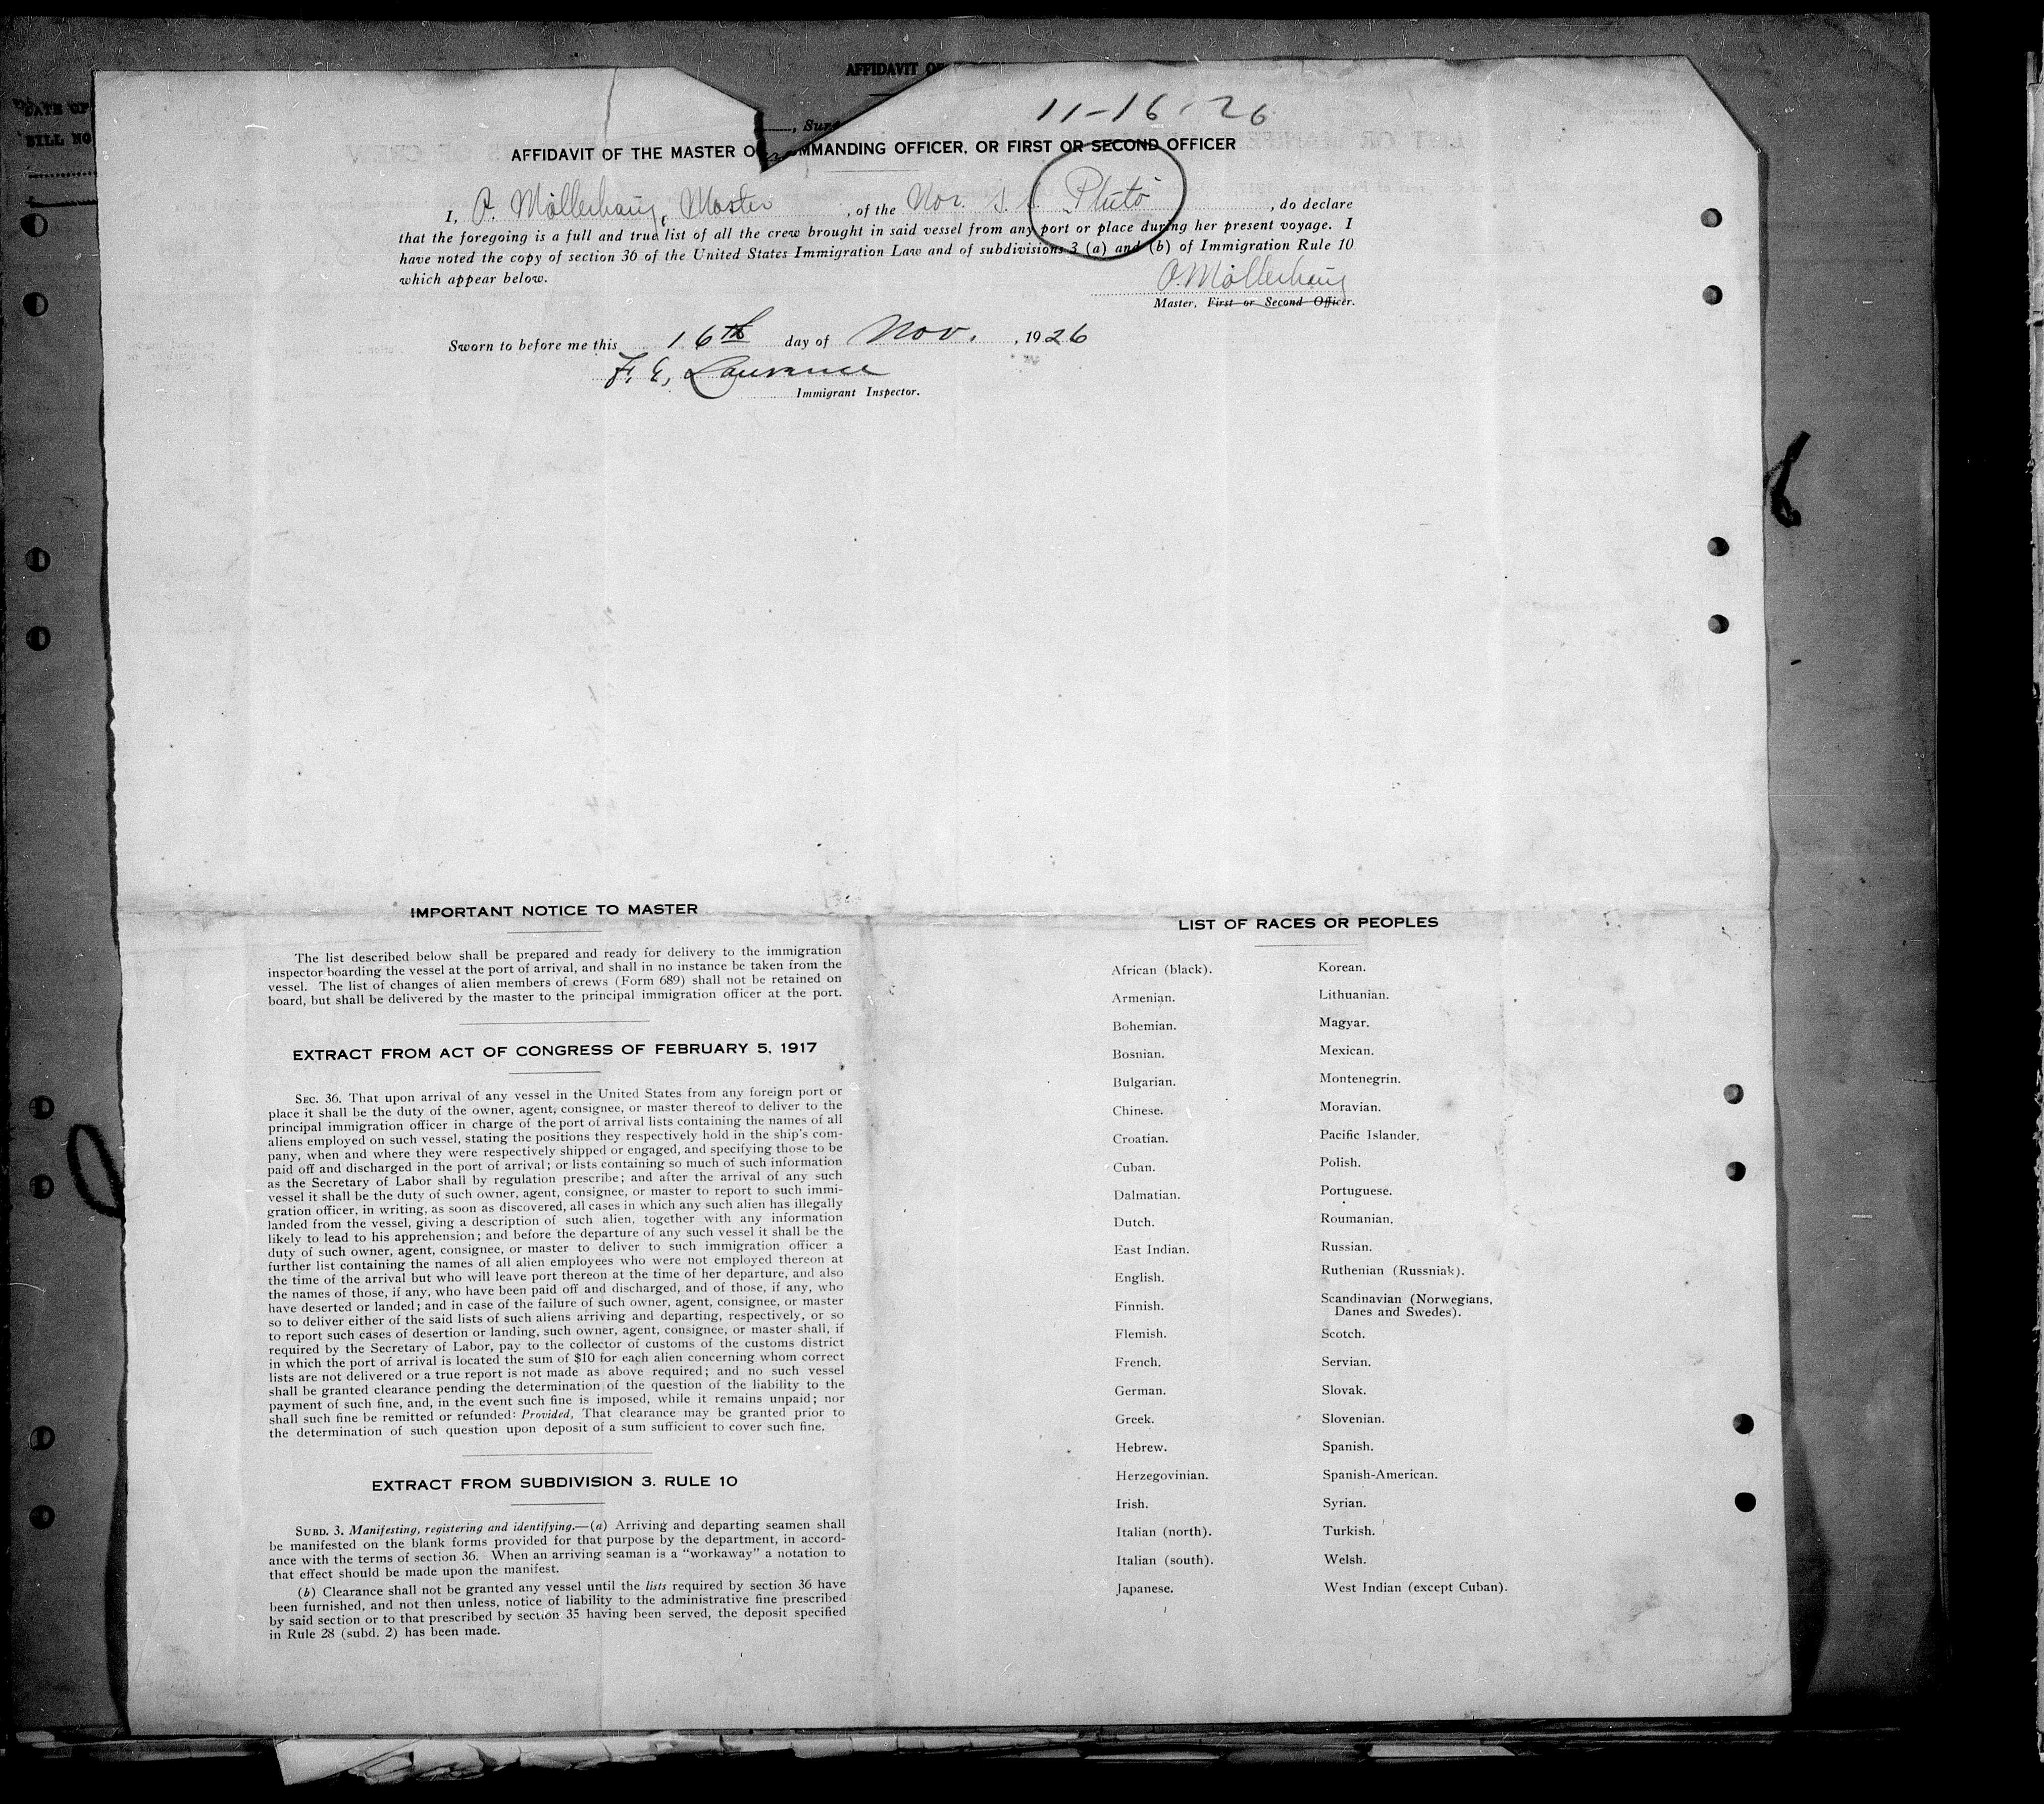 AFFIDAVIT OF
DATE OF
BILL NO
11-16-26
, Sur
AFFIDAVIT OF THE MASTER O MMANDING OFFICER, OR FIRST OR SECOND OFFICER
I, O. Möllerhaug, Master, of the Nor. S. S. Pluto, do declare
that the foregoing is a full and true list of all the crew brought in said vessel from any port or place during her present voyage. I
have noted the copy of section 36 of the United States Immigration Law and of subdivisions 3 (a) and (b) of Immigration Rule 10
which appear below.
O. Möllerhaug
Master, First or Second Officer.
Sworn to before me this 16th day of Nov., 1926
F. E. Lawrance
Immigrant Inspector.
IMPORTANT NOTICE TO MASTER
The list described below shall be prepared and ready for delivery to the immigration
inspector boarding the vessel at the port of arrival, and shall in no instance be taken from the
vessel. The list of changes of alien members of crews (Form 689) shall not be retained on
board, but shall be delivered by the master to the principal immigration officer at the port.
EXTRACT FROM ACT OF CONGRESS OF FEBRUARY 5, 1917
SEC. 36. That upon arrival of any vessel in the United States from any foreign port or
place it shall be the duty of the owner, agent, consignee, or master thereof to deliver to the
principal immigration officer in charge of the port of arrival lists containing the names of all
aliens employed on such vessel, stating the positions they respectively hold in the ship's com-
pany, when and where they were respectively shipped or engaged, and specifying those to be
paid off and discharged in the port of arrival; or lists containing so much of such information
as the Secretary of Labor shall by regulation prescribe; and after the arrival of any such
vessel it shall be the duty of such owner, agent, consignee, or master to report to such immi-
gration officer, in writing, as soon as discovered, all cases in which any such alien has illegally
landed from the vessel, giving a description of such alien, together with any information
likely to lead to his apprehension; and before the departure of any such vessel it shall be the
duty of such owner, agent, consignee, or master to deliver to such immigration officer a
further list containing the names of all alien employees who were not employed thereon at
the time of the arrival but who will leave port thereon at the time of her departure, and also
the names of those, if any, who have been paid off and discharged, and of those, if any, who
have deserted or landed; and in case of the failure of such owner, agent, consignee, or master
so to deliver either of the said lists of such aliens arriving and departing, respectively, or so
to report such cases of desertion or landing, such owner, agent, consignee, or master shall, if
required by the Secretary of Labor, pay to the collector of customs of the customs district
in which the port of arrival is located the sum of $10 for each alien concerning whom correct
lists are not delivered or a true report is not made as above required; and no such vessel
shall be granted clearance pending the determination of the question of the liability to the
payment of such fine, and, in the event such fine is imposed, while it remains unpaid; nor
shall such fine be remitted or refunded: Provided, That clearance may be granted prior to
the determination of such question upon deposit of a sum sufficient to cover such fine.
EXTRACT FROM SUBDIVISION 3, RULE 10
SUBD. 3. Manifesting, registering and identifying.—(a) Arriving and departing seamen shall
be manifested on the blank forms provided for that purpose by the department, in accord-
ance with the terms of section 36. When an arriving seaman is a "workaway" a notation to
that effect should be made upon the manifest.
(b) Clearance shall not be granted any vessel until the lists required by section 36 have
been furnished, and not then unless, notice of liability to the administrative fine prescribed
by said section or to that prescribed by section 35 having been served, the deposit specified
in Rule 28 (subd. 2) has been made.
LIST OF RACES OR PEOPLES
African (black).
Armenian.
Bohemian.
Bosnian.
Bulgarian.
Chinese.
Croatian.
Cuban.
Dalmatian.
Dutch.
East Indian.
English.
Finnish.
Flemish.
French.
German.
Greek.
Hebrew.
Herzegovinian.
Irish.
Italian (north).
Italian (south).
Japanese.
Korean.
Lithuanian.
Magyar.
Mexican.
Montenegrin.
Moravian.
Pacific Islander.
Polish.
Portuguese.
Roumanian.
Russian.
Ruthenian (Russniak).
Scandinavian (Norwegians,
Danes and Swedes).
Scotch.
Servian.
Slovak.
Slovenian.
Spanish.
Spanish-American.
Syrian.
Turkish.
Welsh.
West Indian (except Cuban).